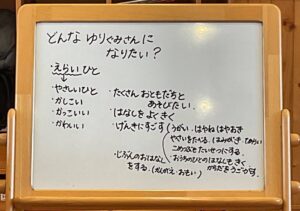 どんな ゆりぐみさんに
なりたい？
・えらい ひと
・やさしい ひと
・かしこい
・かっこいい
・かわいい
・たくさん おともだちと
あそびたい。
・はなしを よく きく
・げんきに すごす
うがい、はやね はやおき
やさいをたべる、はみがき
こめつぶもたいせつにする。
おうちのひとの はなしも きく
からだを うごかす。
・じぶんの おはなし
をする。(かんがえ、おもい)